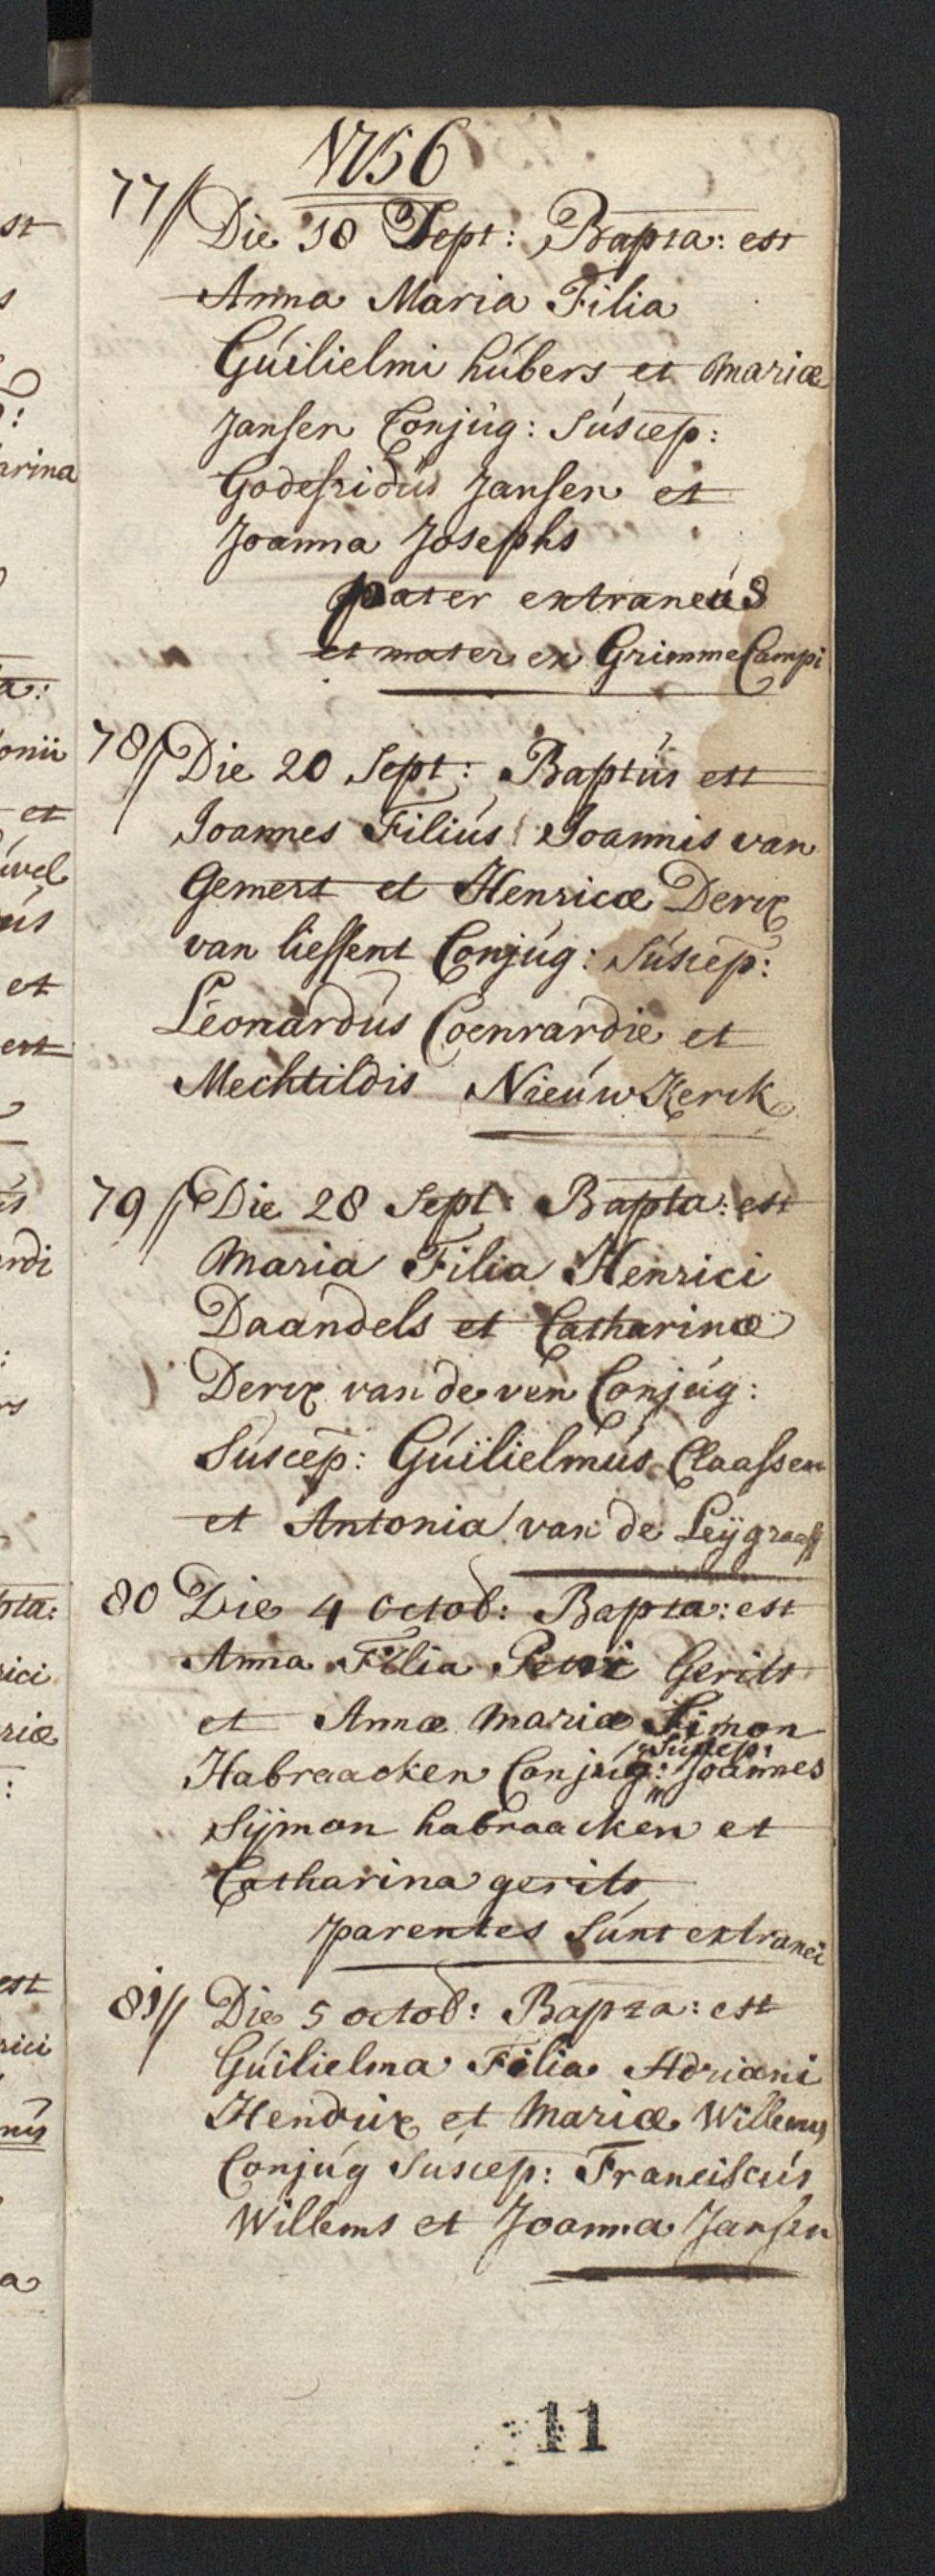 1756
77 // Die 18 Sept: Bapta: est
Anna Maria Filia
Guilielmi hubers et Mariæ
Jansen Conjug: Suscep:
Godefridus Jansen et
Joanna Josephs
pater extraneus
et mater ex Grimme Campi
78 // Die 20 Sept: Baptus est
Joannes Filius Joannis van
Gemert et Henricæ Derix
van liessent Conjug: Suscep:
Leonardus Coenrardie et
Mechtildis Nieuw Kerck
79 // Die 28 Sept: Bapta: est
Maria Filia Henrici
Daandels et Catharinæ
Derix van de ven Conjug:
Suscep: Guilielmus Claassen
et Antonia van de Leijgraaff
80 Die 4 Octob: Bapta: est
Anna Filia Petri Gerits
et Annæ Mariæ Simon
Suscep:
Habraacken Conjug: Joannes
Sijmon habraacken et
Catharina gerits
parentes Sunt extranei
81 // Die 5 octob: Bapta: est
Guilielma Filia Adriani
Hendrix et Mariæ Willems
Conjug Suscep: Franciscus
Willems et Joanna Jansen
11
st
arina
a:
onii
et
uvel
us
et
est
ardi
pta:
rici
riæ
:
est
rici
nus
a